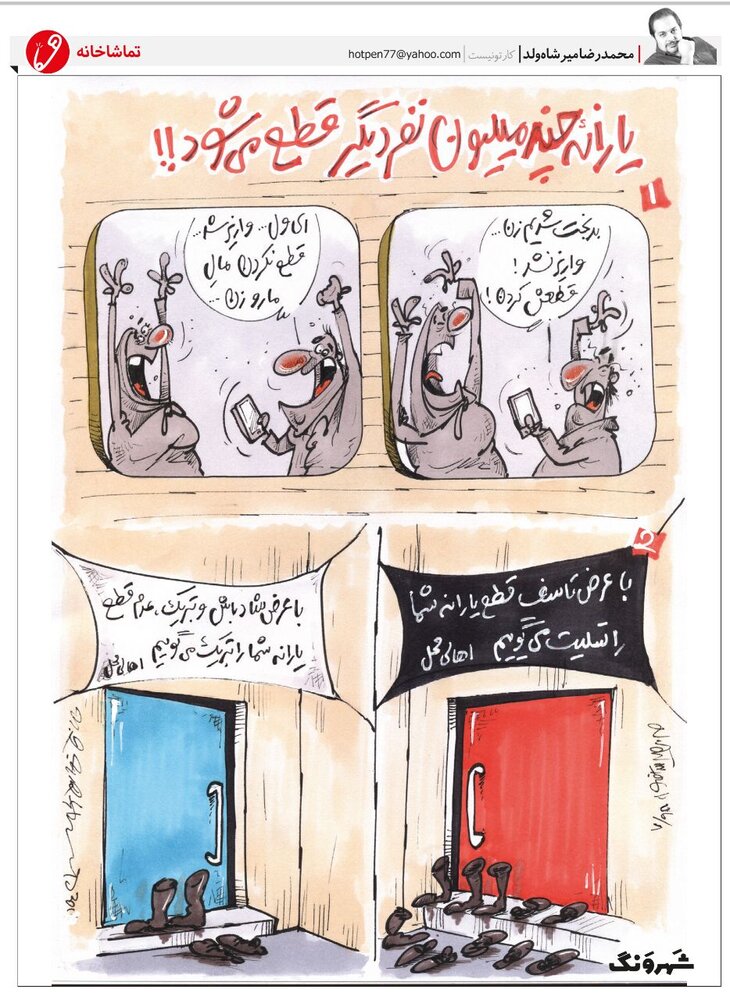 محمدرضا میرشاه‌ولد | کارتونیست | hotpen77@yahoo.com
تماشاخانه
یارانهٔ چند میلیون نفر دیگر قطع می‌شود!!
۱
بدبخت شدیم زن...
واریز نشد!
قطعش کردن!
ای ول... واریز شد...
قطع نکردن مالِ
مارو زن...
۲
با عرض تاسف قطع یارانه شما
را تسلیت می‌گوییم اهالی محل
با عرض شادباش و تبریک، عدم قطع
یارانه شما را تبریک می‌گوییم اهالی محل
شهرونگ